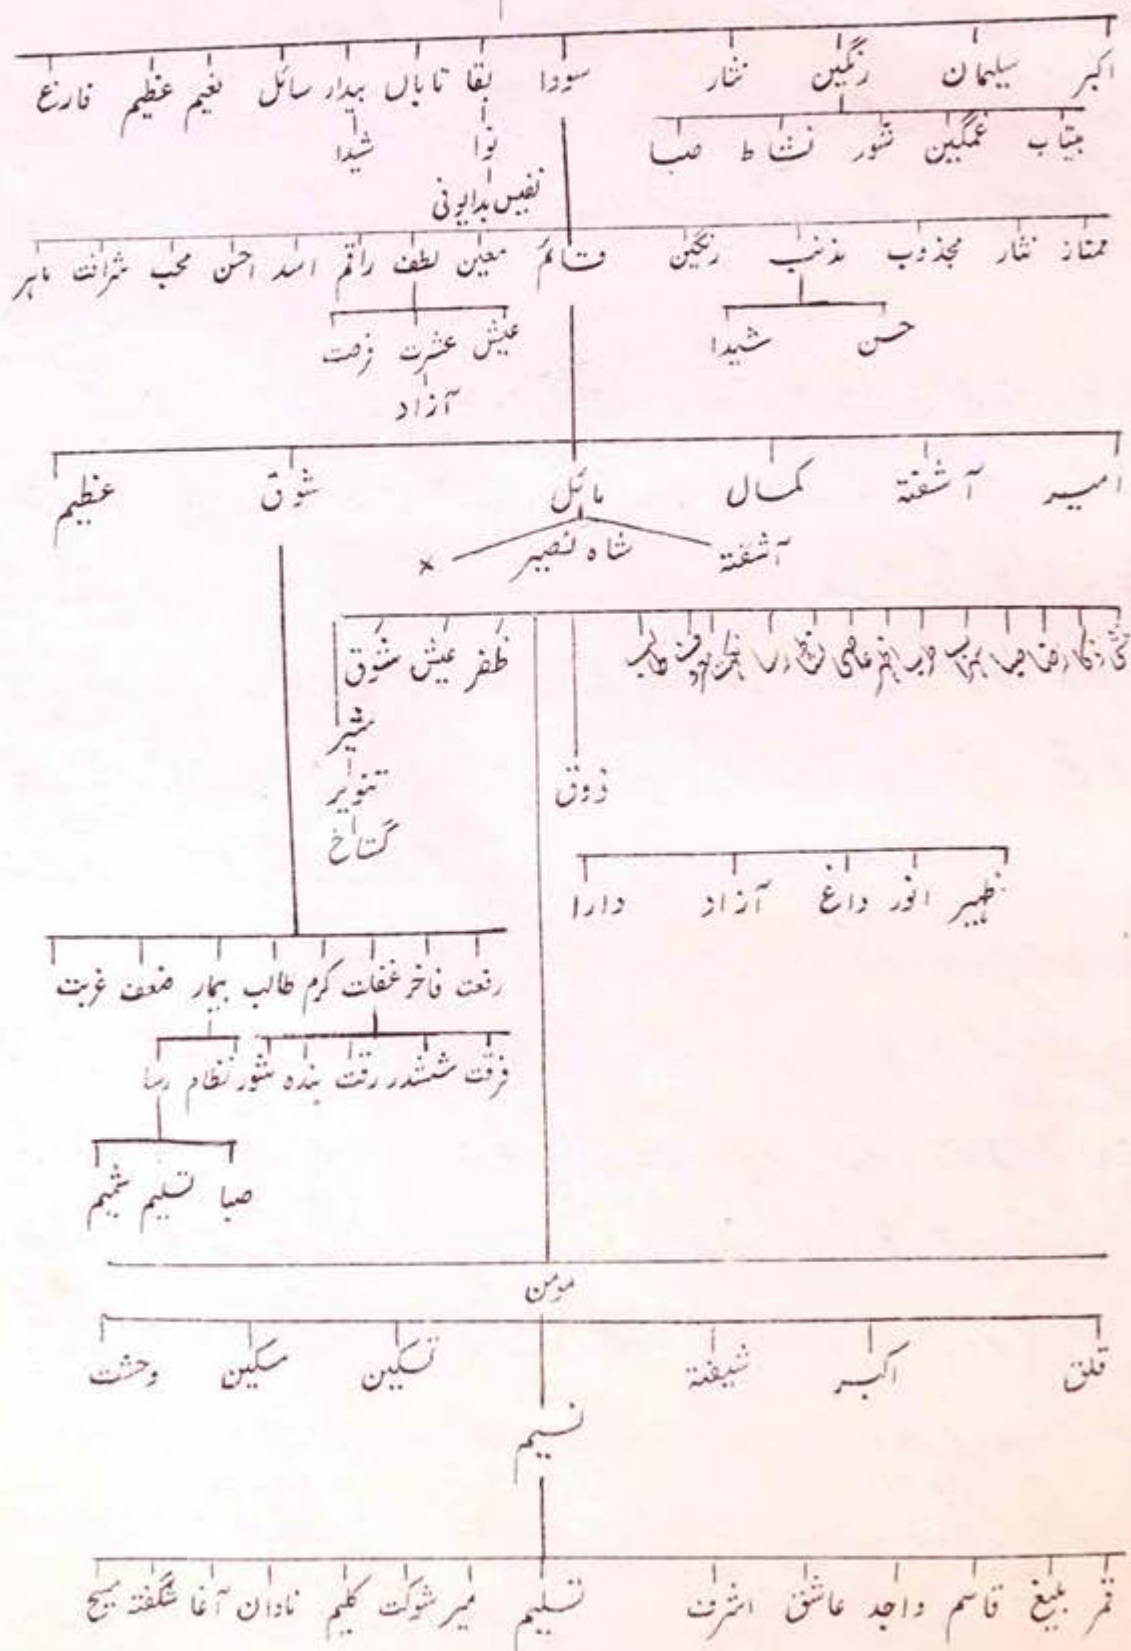 اکبر سلیمان رنگین نثار سودا بقا تاباں بیدار سائل نعیم عظیم فارغ
بیتاب غمگین شور نشاط صبا نوا شیدا
نفیس بدایونی
ممتاز نثار مجذوب مذنب رنگین قائم معین لطف راقم اسد احسن محب شرافت ماہر
حسن شیدا عیش عشرت فرصت
آزاد
امیر آشفتہ کمال مائل شوق عظیم
آشفتہ شاہ نصیر ×
منشی ذکا رضا صبا سہراب حرب عاصی نشاط رسا نکہت معروف طالب ظفر عیش شوق
شیر
ذوق تنویر
گستاخ
ظہیر انور داغ آزاد دارا
رفعت فاخر غفلت کرم طالب بیمار ضعف غربت
فرقت ششدر رقت بندہ شور نظام رسا
صبا تسلیم شمیم
مومن
قلق اکبر شیفتہ تسکین مسکین وحشت
نسیم
قمر بلیغ قاسم واجد عاشق اشرف تسلیم میر شوکت کلیم نادان آغا شگفتہ مسیح